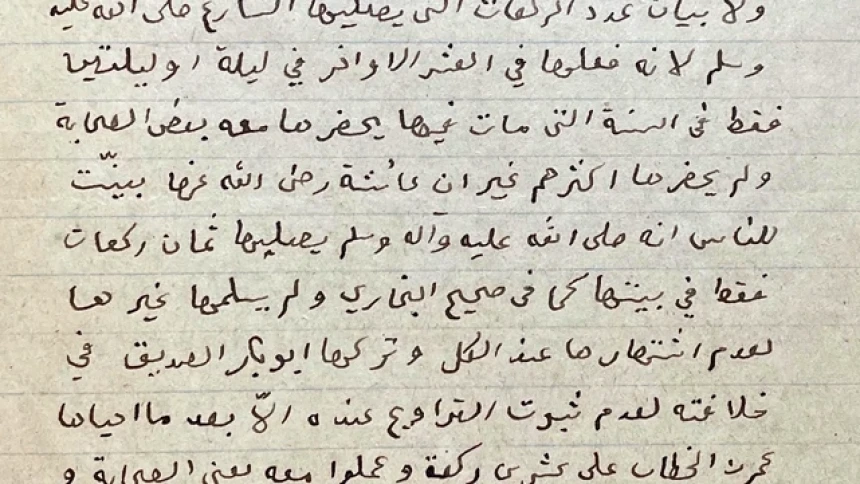 ولا بيان عدد الركعات التى يصليها الشارع صلى الله عليه
وسلم لانه فعلها في العشر الاواخر في ليلة او ليلتين
فقط فى السنة التى مات فيها يحضرها معه بعض الصحابة
ولم يحضرها اكثرهم غير ان عائشة رضى الله عنها بينّت
للناس انه صلى الله عليه وآله وسلم يصليها ثمان ركعات
فقط في بيتها كما فى صحيح البخاري ولم يسلمها غيرها
لعدم اشتهارها عند الكل وتركها ابوبكر الصديق في
خلافته لعدم ثبوت التراويح عنده الاّ بعد ما احياها
عمر بن الخطاب على عشرين ركعة وعملوا معه بعض الصحابة و